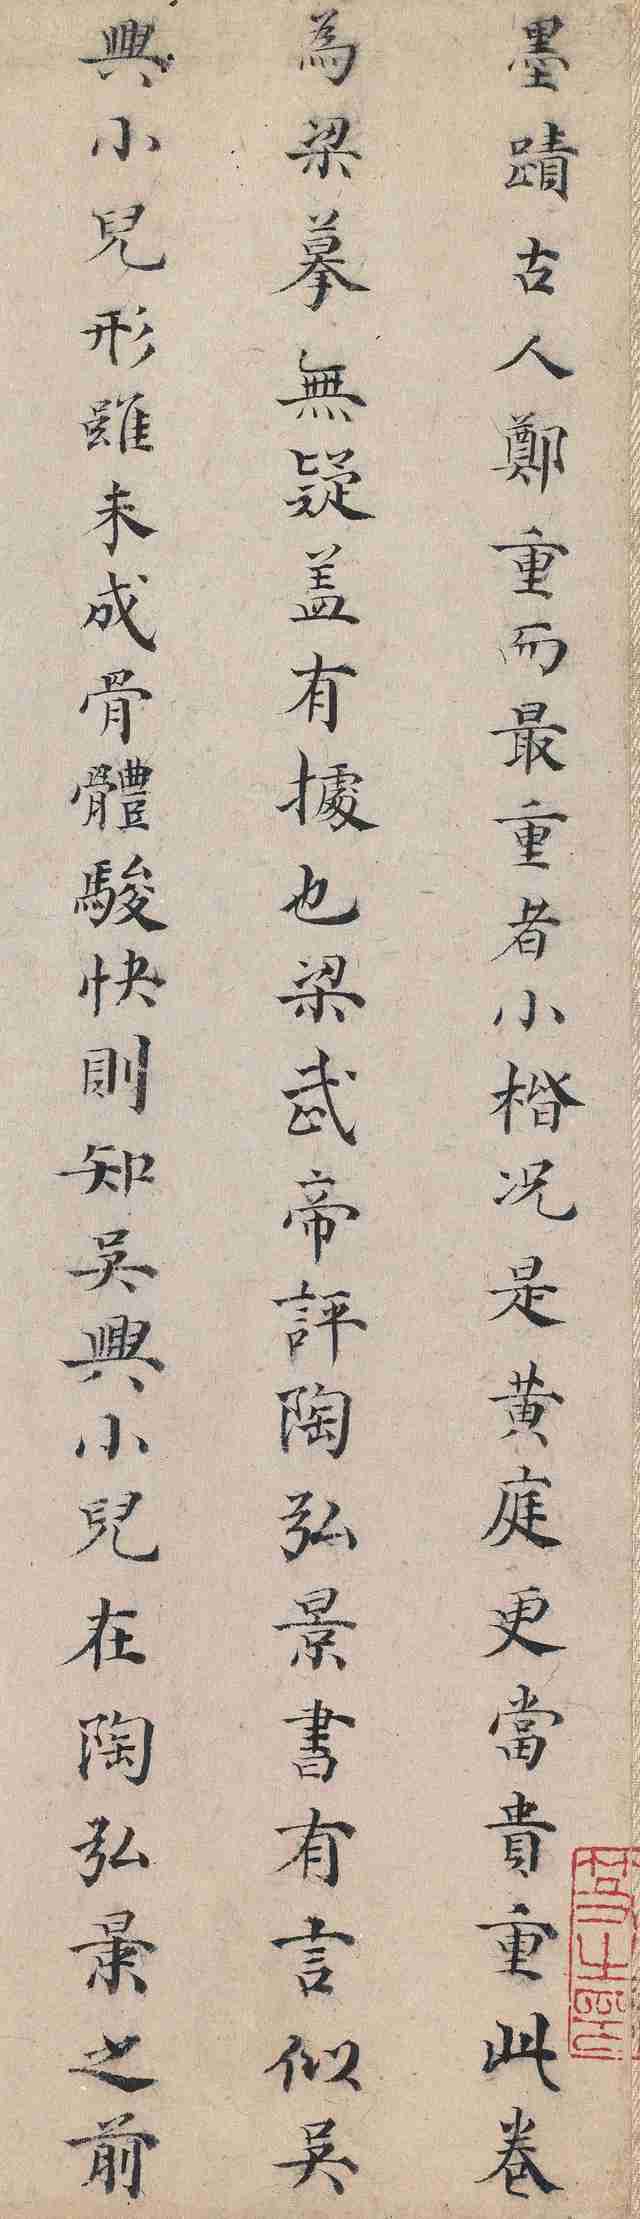 墨蹟古人鄭重而最重者小楷況是黃庭更當貴重此卷
為梁摹無疑蓋有據也梁武帝評陶弘景書有言似吳
興小兒形雖未成骨體駿快則知吳興小兒在陶弘景之前